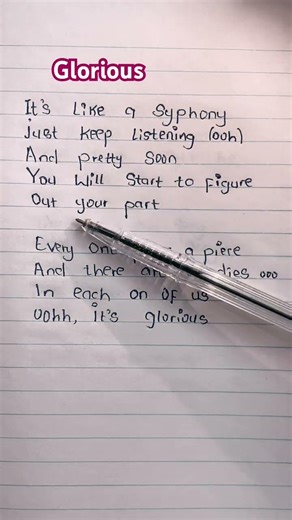 Glorious
It's Like a Syphony
Just Keep Listening (ooh)
And pretty soon
You Will Start to Figure
Out your part
Every one a piere
And there dies ooo
In each on of us
oohh, it's glorious